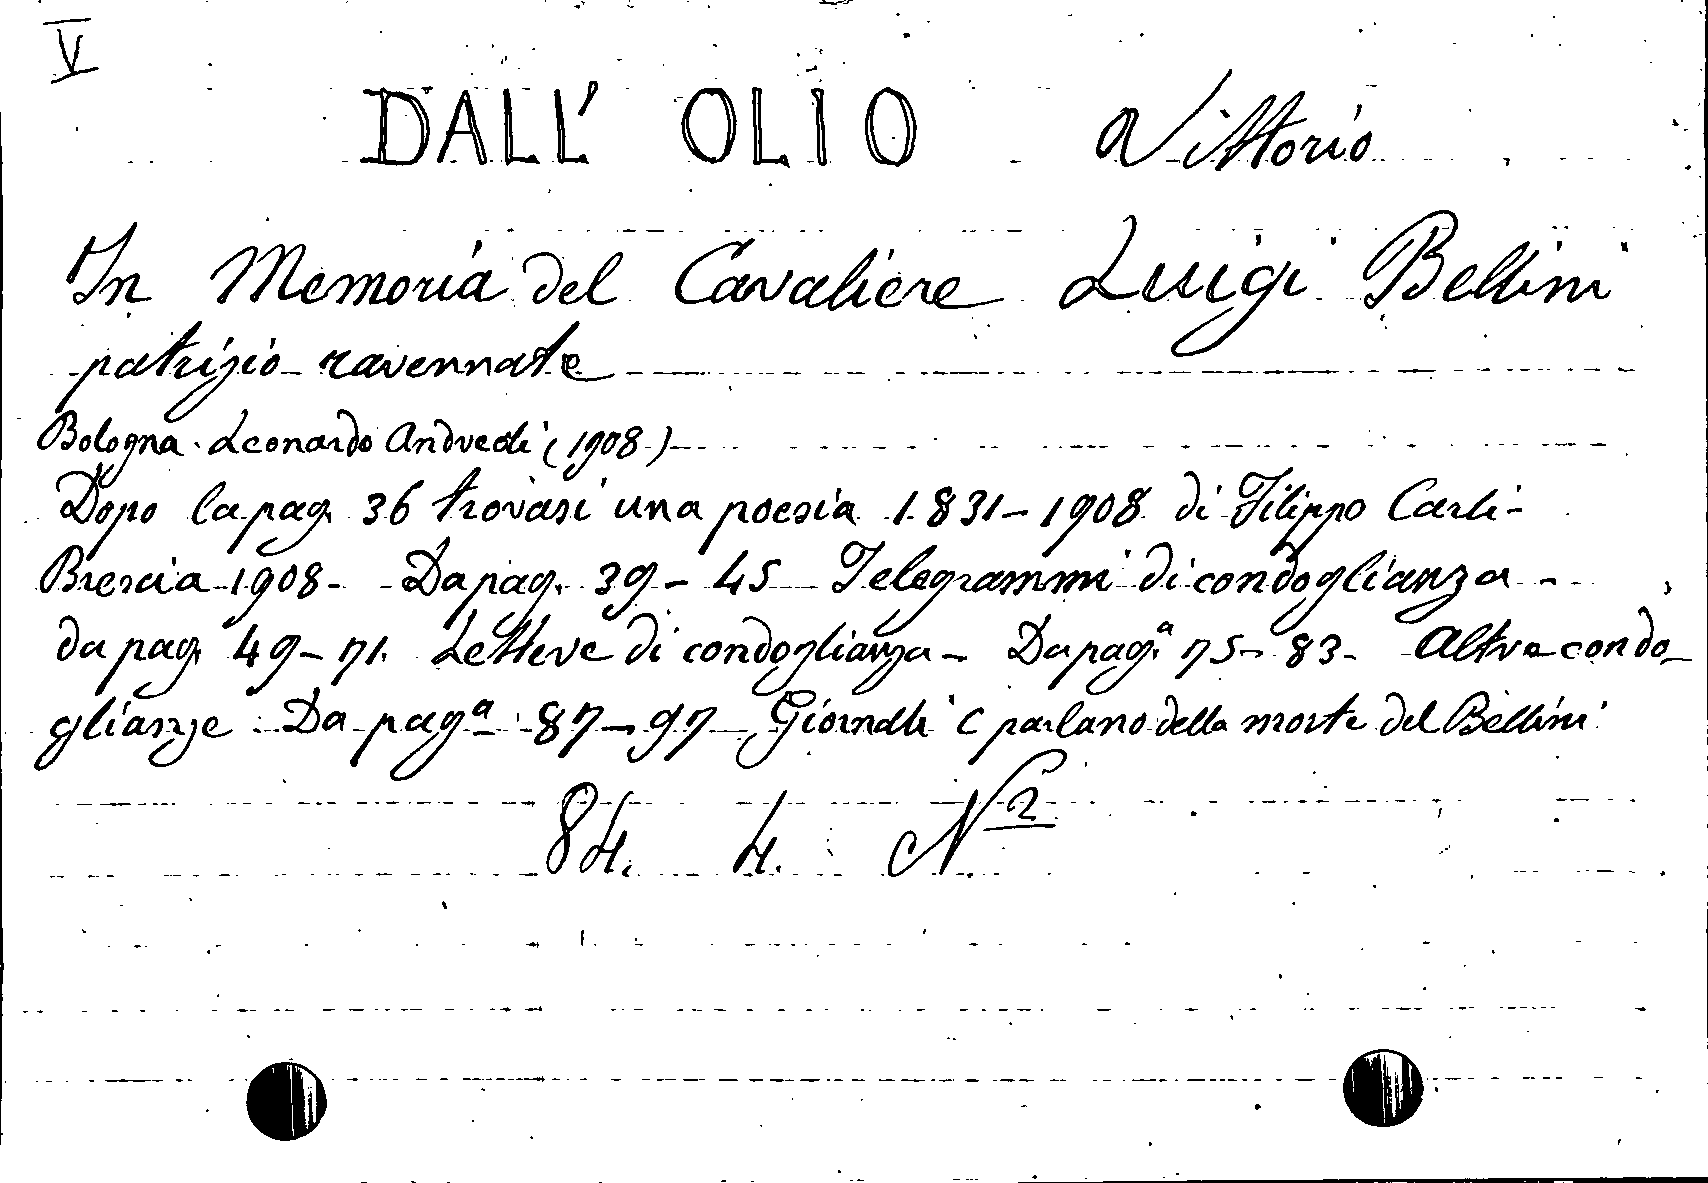 V
DALL' OLIO Vittorio
In Memoria del Cavaliere Luigi Bellini
patrizio ravennate
Bologna. Leonardo Andreoli (1908)
Dopo la pag. 36 trovasi una poesia 1831-1908 di Filippo Carli-
Brescia 1908- Da pag. 39-45 Telegrammi di condoglianza -
da pag. 49-71. Lettere di condoglianza - Da pagª 75-83- Altre condo-
glianze. Da pagª 87-97 Giornali c parlano della morte del Bellini
84. 4. N 2